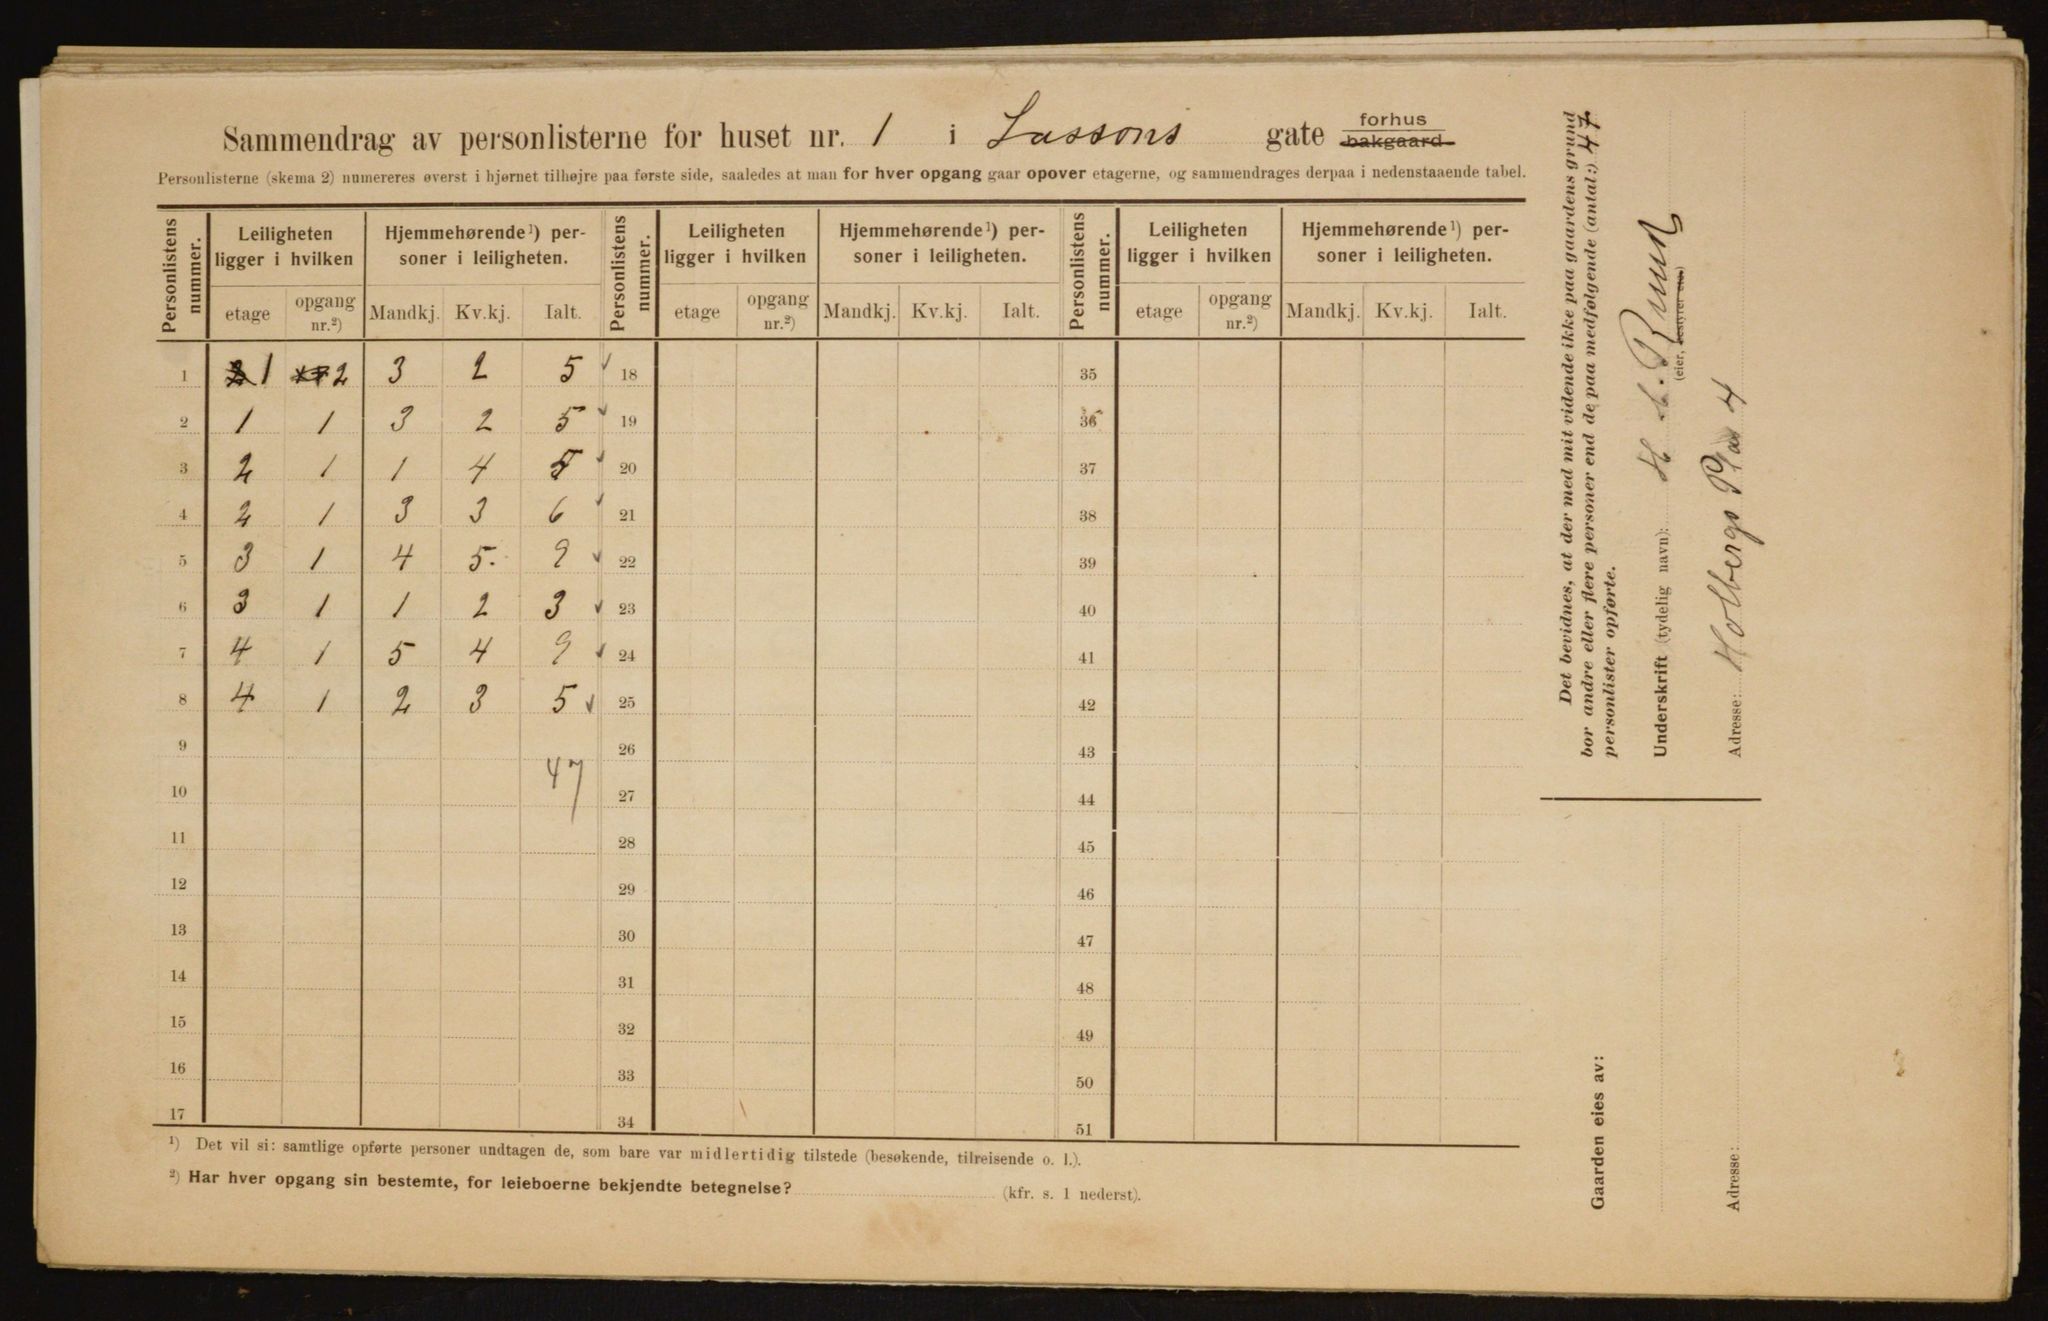 Sammendrag av personlisterne for huset nr. 1 i Lassons gate forhus bakgaard
Personlisterne (skema 2) numereres øverst i hjørnet tilhøjre paa første side, saaledes at man for hver opgang gaar opover etagerne, og sammendrages derpaa i nedenstaaende tabel.
Personlistens nummer. Leiligheten ligger i hvilken Hjemmehørende 1) personer i leiligheten. Personlistens nummer. Leiligheten ligger i hvilken Hjemmehørende 1) personer i leiligheten. Personlistens nummer. Leiligheten ligger i hvilken Hjemmehørende 1) personer i leiligheten.
etage opgang nr.2) Mandkj. Kv.kj. Ialt. etage opgang nr.2) Mandkj. Kv.kj. Ialt. etage opgang nr.2) Mandkj. Kv.kj. Ialt.
1 1 2 3 2 5 18 35
2 1 1 3 2 5 19 36
3 2 1 1 4 5 20 37
4 2 1 3 3 6 21 38
5 3 1 4 5. 9 22 39
6 3 1 1 2 3 23 40
7 4 1 5 4 9 24 41
8 4 1 2 3 5 25 42
9 26 43
47
10 27 44
11 28 45
12 29 46
13 30 47
14 31 48
15 32 49
16 33 50
17 34 51
1) Det vil si: samtlige opførte personer undtagen de, som bare var midlertidig tilstede (besøkende, tilreisende o. l.).
2) Har hver opgang sin bestemte, for leieboerne bekjendte betegnelse? (kfr. s. 1 nederst).
Det bevidnes, at der med mit vidende ikke paa gaardens grund
bor andre eller flere personer end de paa medfølgende (antal:) 47
personlister opførte.
Underskrift (tydelig navn): Ruud
(eier, bestyrer etc.)
Adresse: Holbergs Plas 4
Gaarden eies av:
Adresse: